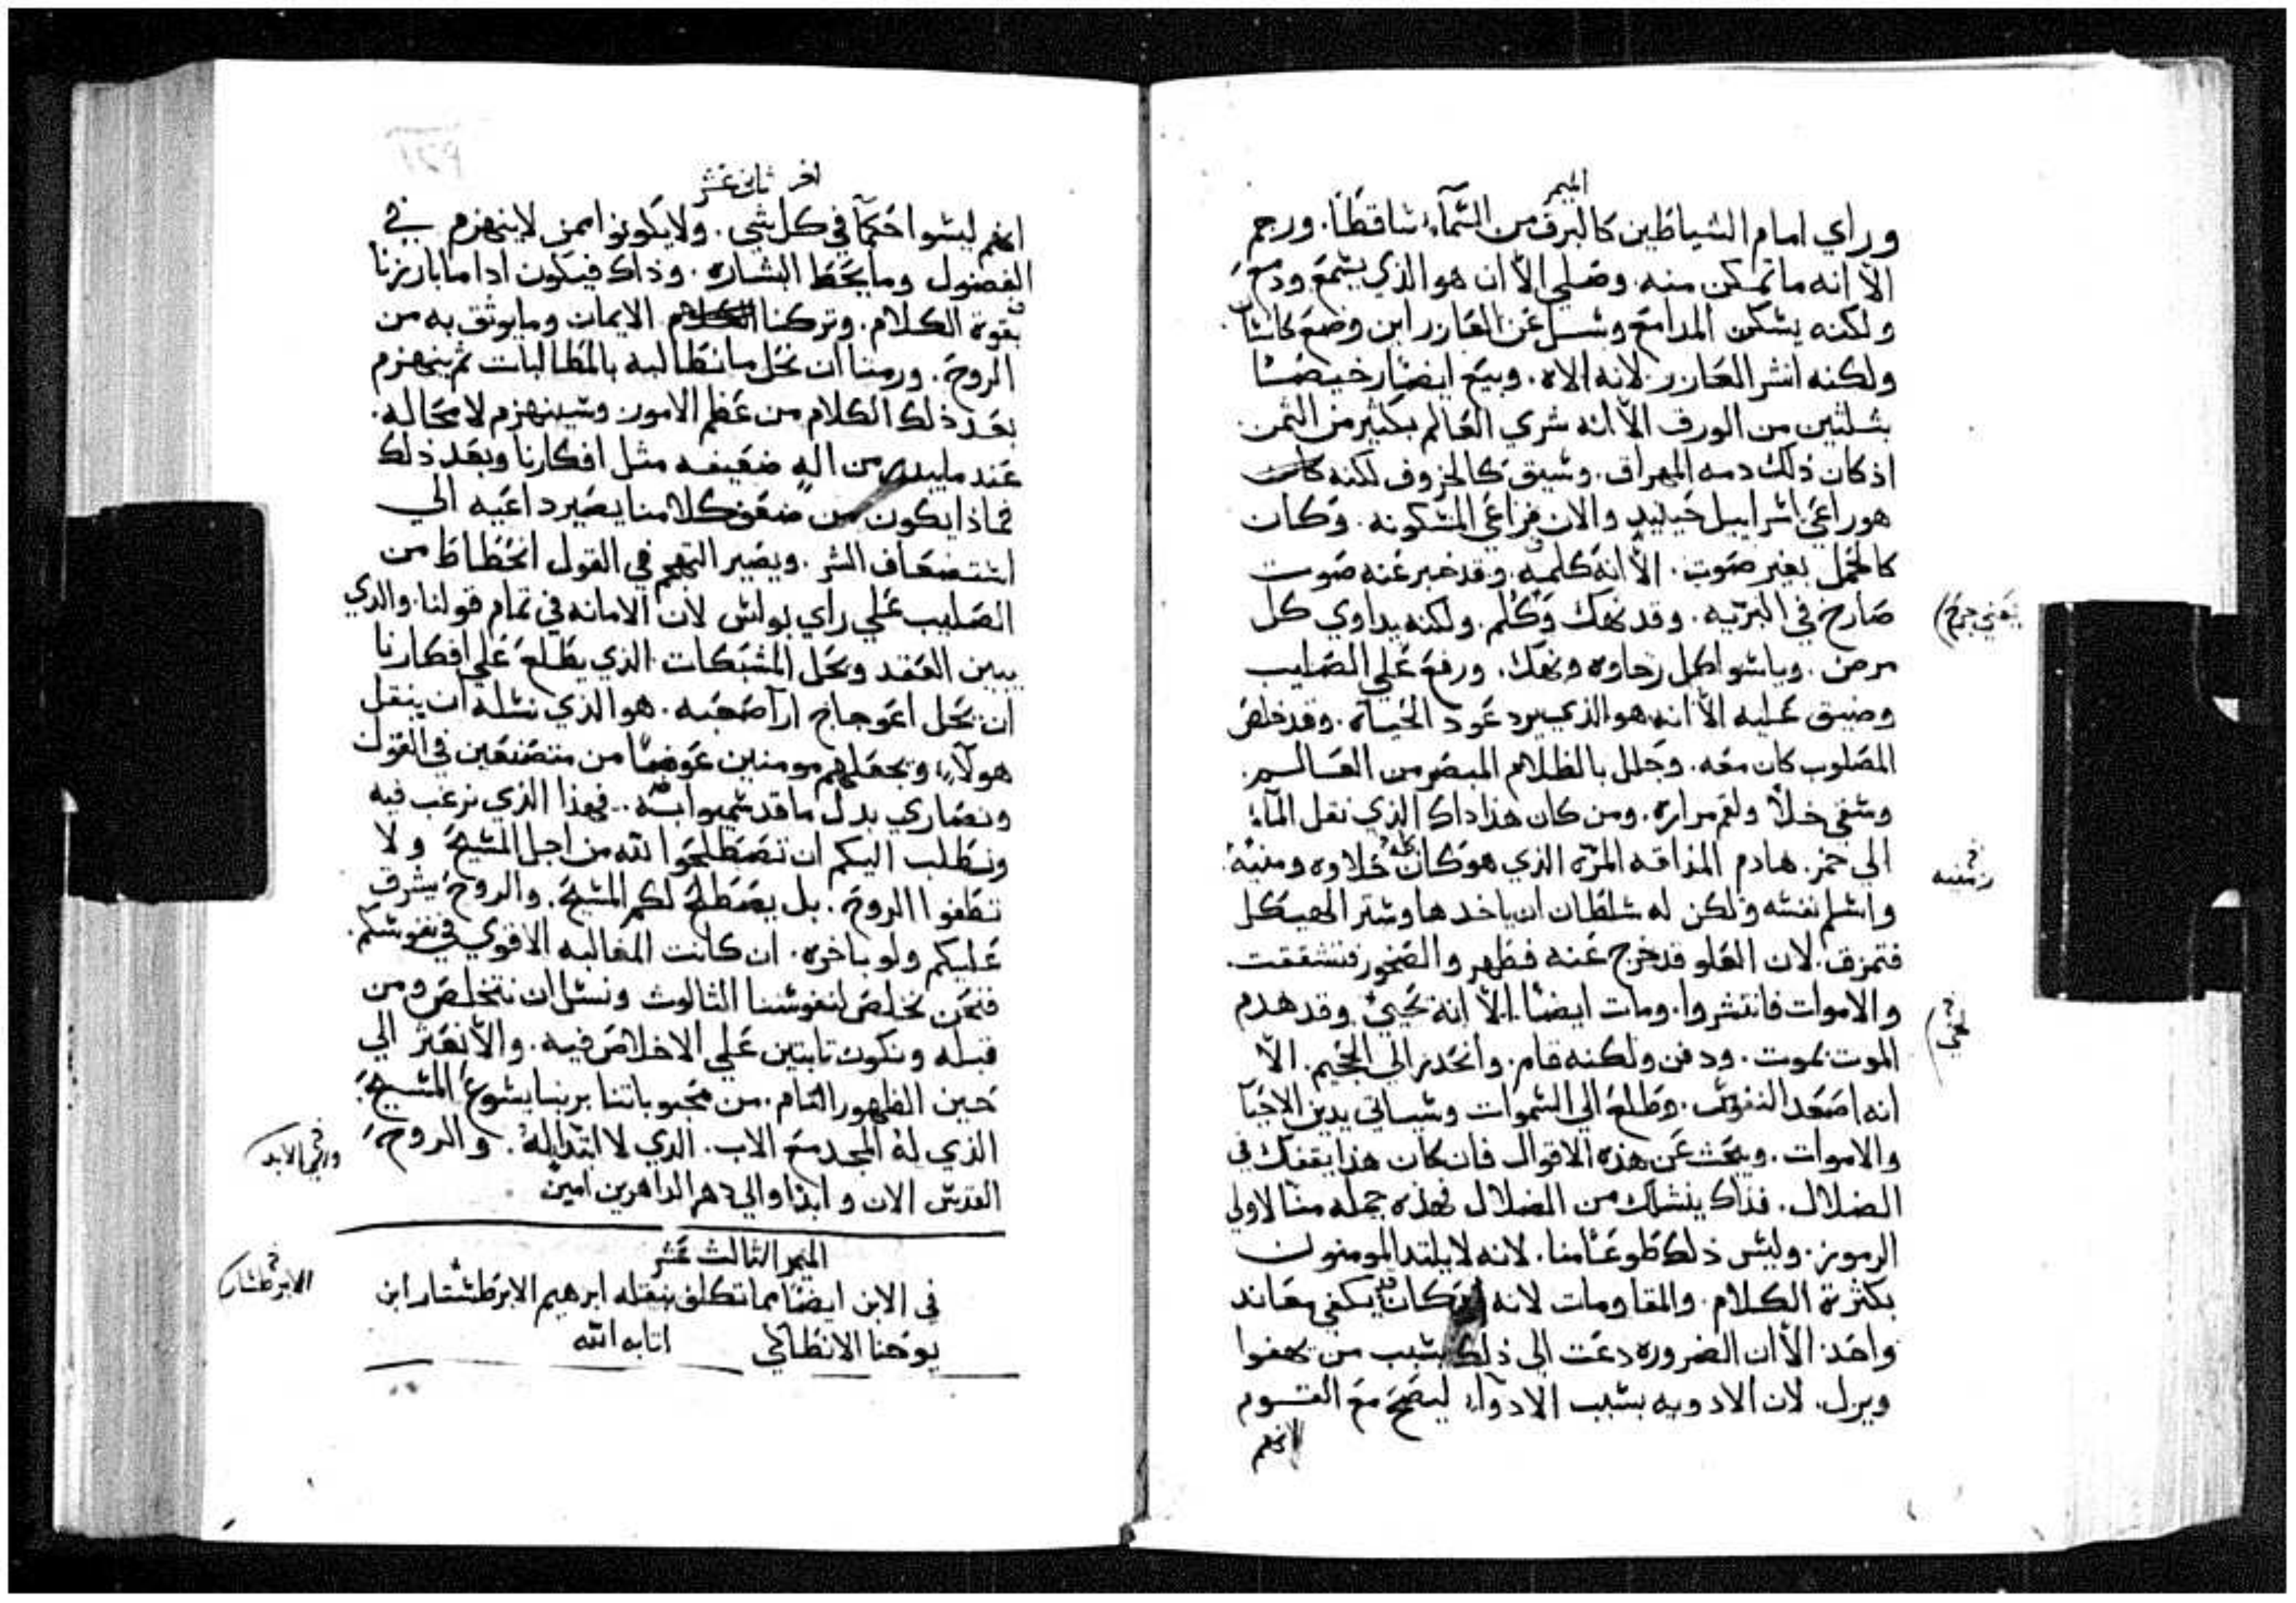 الميمر
وراي امام الشياطين كالبرق من السَّمآء ساقطًا. ورجم
الّا انه ما تمكن منه. وصلي الّا ان هو الذي يسمع ودمع
ولكنه يسكن المدامع وسـل عن العازر اين وضع كانسان
ولكنه انشر العازر لانه الاه. وبيع ايضًا رخيصًا
بثلثين من الورق الّا انه شري العالم بكثير من الثمن
اذ كان ذلك دمه المهراق. وسيق كالخروف لكنه كان
هو راعي اسراييل حينيدٍ والان فراعي المسكونه. وكان
كالحمل بغير صوت. الّا انه كلمه. وقد خبر عنه صوت
صارخ في البريّه. وقد نهك وكلم. ولكنه يداوي كل
يعني جرح
مرض. وياسوا كل رخاوه ونهك. ورفع علي الصليب
وضيق عليه الّا انه هو الذي يرد عود الحياة. وقد خلص
المصلوب كان معه. وجلل بالظلام المبصر من العالـم.
وسقي خلًا ولقم مراره. ومن كان هذا داك الذي نقل المآء
الي خمر. هادم المذاقه المرّه الذي هو كان كله حلاوه ومنيه.
واسلم نفسه ولكن له سلطان ان ياخدها وستر الهيكل
فتمزق. لان العلو قد خرج عنه فظهر والصخور فتشققت.
والاموات فانتشروا. ومات ايضًا. الّا انه يحيي وقد هدم
الموت بموت. ودفن ولكنه قام. وانحدر الي الجحيم. الّا
انه اصعد النفوس. وطلع الي السموات وسياتي يدين الاحيآ
والاموات. ويبحث عن هذه الاقوال فان كان هذا يقفك في
الضلال. فذاك ينشلك من الضلال فهذه جمله منّا لاولي
الرموز. وليس ذلك طوعًا منا. لانه لا يلتد المومنون
بكثرة الكلام. والمقاومات لانه قد كان يكفي معاند
واحد. الّا ان الضروره دعت الي ذلك بسبب من يهفوا
ويزل. لان الادويه بسبب الادوآء ليصح مع القـوم
انهم
اخر ثاني عشر
انهم ليسوا حكمآ في كل شي. ولا يكونوا ممن لا ينهزم في
الفضول وما يحط البشاره. وذاك فيكون ادا ما بارزنا
بقوة الكلام. وتركنا الايمان وما يوثق به من
الروح. ورمنا ان نحل ما نطالبه بالمطالبات ثم ينهزم
بعد ذلك الكلام من عظم الامور وسينهزم لا محاله.
عند من اله ضعيفه مثل افكارنا وبعد ذلك
فماذا يكون من ضعف كلامنا يصير داعيه الي
استضعاف السر. ويصير التهجم في القول انحطاط من
الصليب علي راي بولس لان الامانه في تمام قولنا. والدي
يبين العقد ويحل المشبكات الذي يطلع علي افكارنا
ان يحل اعوجاج ارآ صعبه. هو الذي نسله ان ينقل
هولآء ويجعلهم مومنين عوضًا من متصنعين في القول
ونصاري بدل ما قد سميوا به. فهذا الذي نرغب فيه
ونطلب اليكم ان تصطلحوا لله من اجل المسيح ولا
تطفوا الروح. بل يصطلح لكم المسيح. والروح يشرق
عليكم ولو باخره. ان كانت المغالبه الاقوي في نفوسكم.
فنحن نخلص لنفوسنا الثالوث ونسل ان نتخلص ومن
قبله ونكون تابتين علي الاخلاص فيه. والّا نعثر الي
حين الظهور التام. من محبوباتنا بربنا يسوع المسيح.
الذي له المجد مع الاب. الدي لا ابتدا له. والروح
القدس الان و ابدًا والي دهر الداهرين امين
الميمر الثالث عشر
في الابن ايضًا مما تكلف بنقله ابرهيم الابرطسبار ابن
يوحنا الانطاكي اثابه الله